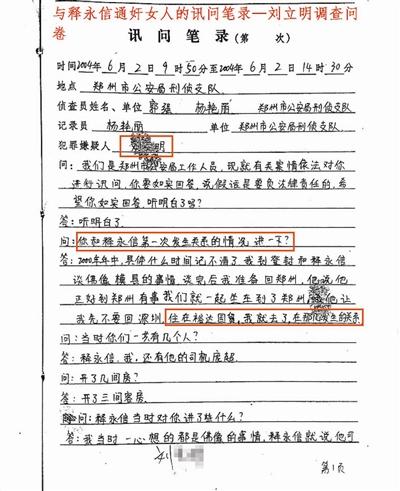 与释永信通奸女人的讯问笔录—刘立明调查问
卷
讯问笔录(第 次)
时间2004年6月2日9时50分至2004年6月2日14时30分
地点 郑州市公安局刑侦支队
侦查员姓名、单位 郭磊 杨艳丽 郑州市公安局刑侦支队
记录员 杨艳丽 单位 郑州市公安局刑侦支队
犯罪嫌疑人 明
问:我们是郑州市公安局工作人员,现就有关案情依法对你
进行讯问,你要如实回答,说假话是要负法律责任的,希
望你如实回答,听明白了吗?
答:听明白了.
问:你和释永信第一次发生关系的情况讲一下?
答:2000年年中,具体什么时间记不清了,我到登封和释永信
谈佛像模具的事情,谈完后我准备回郑州,他说他
正好到郑州有事我们就一起坐车到了郑州,他让
我先不要回深圳,住在裕达国贸,我就去了,在那儿发生的关系
问:当时你们一共有几个人?
答:释永信,我,还有他的司机庞超.
问:开了几间房?
答:开了三间客房.
问:释永信当时对你讲了些什么?
答:我当时一心想的都是佛像的事情,释永信就说,他可
刘
第1页